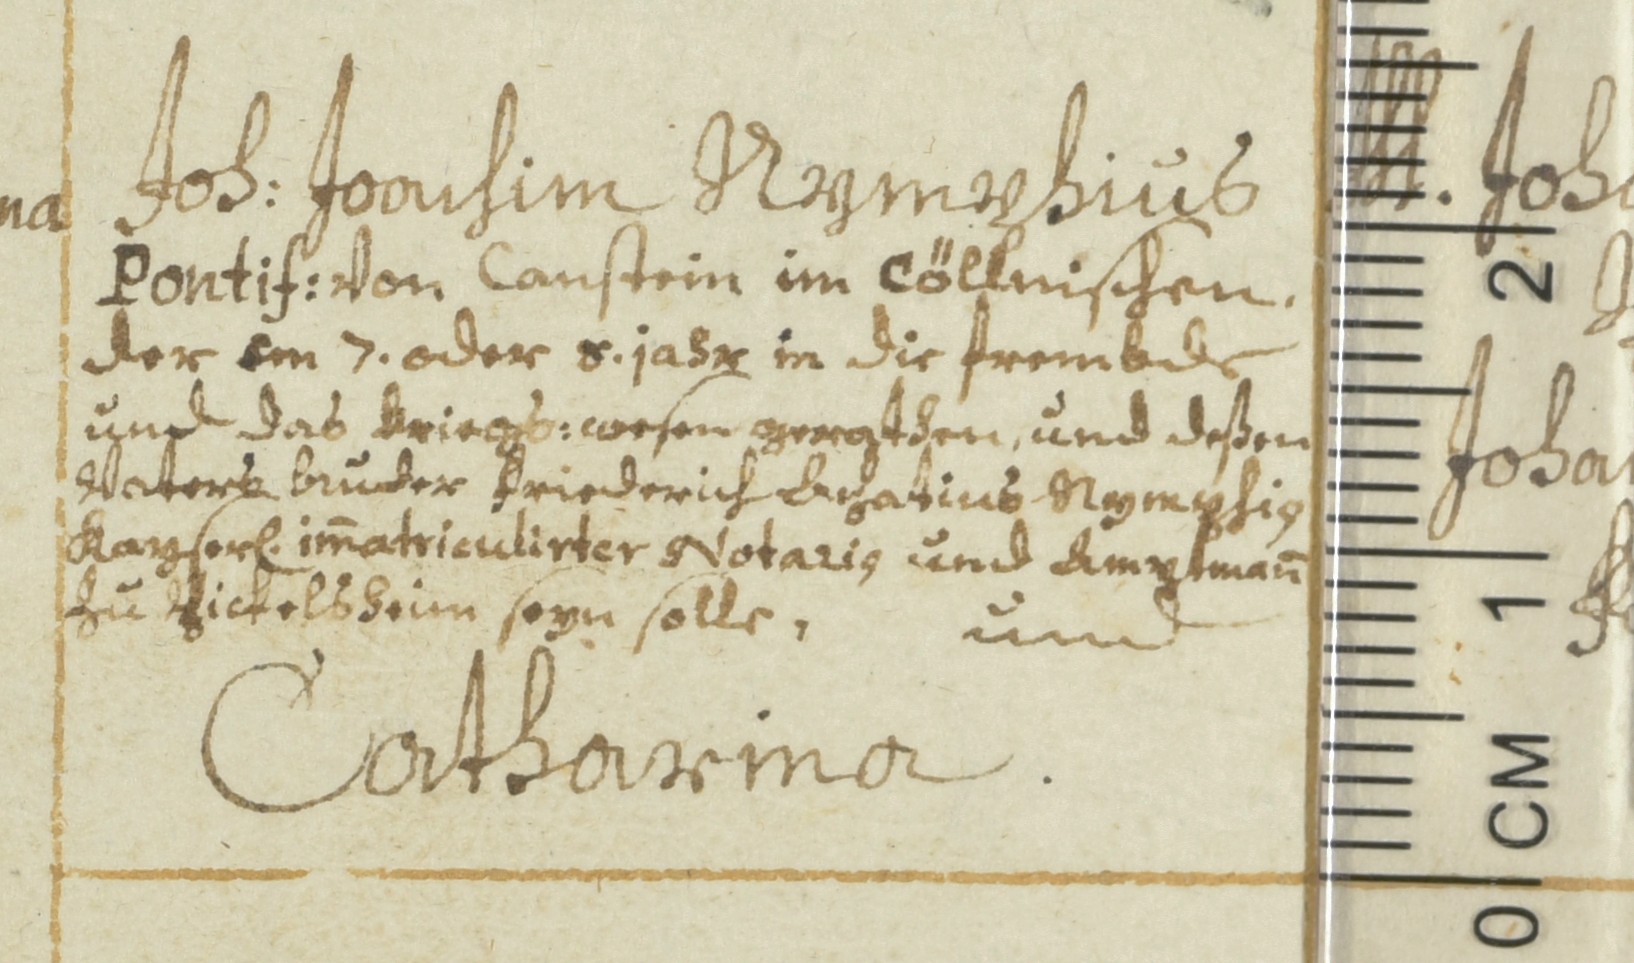 Joh: Joachim Nymphius
Pontif: von Canstein im Cöllnischen.
der im 7. oder 8. jahr in die frembde
und das kriegs: wesen gerathen, und deßen
Vaters bruder Friederich Achatius Nymphig
Kayserl. im̄atriculirter Notarig und Amptman̄
zu Bickelsheim seyn solle, und
Catharina.
na
M. Joha
Johan
2
1
0 CM